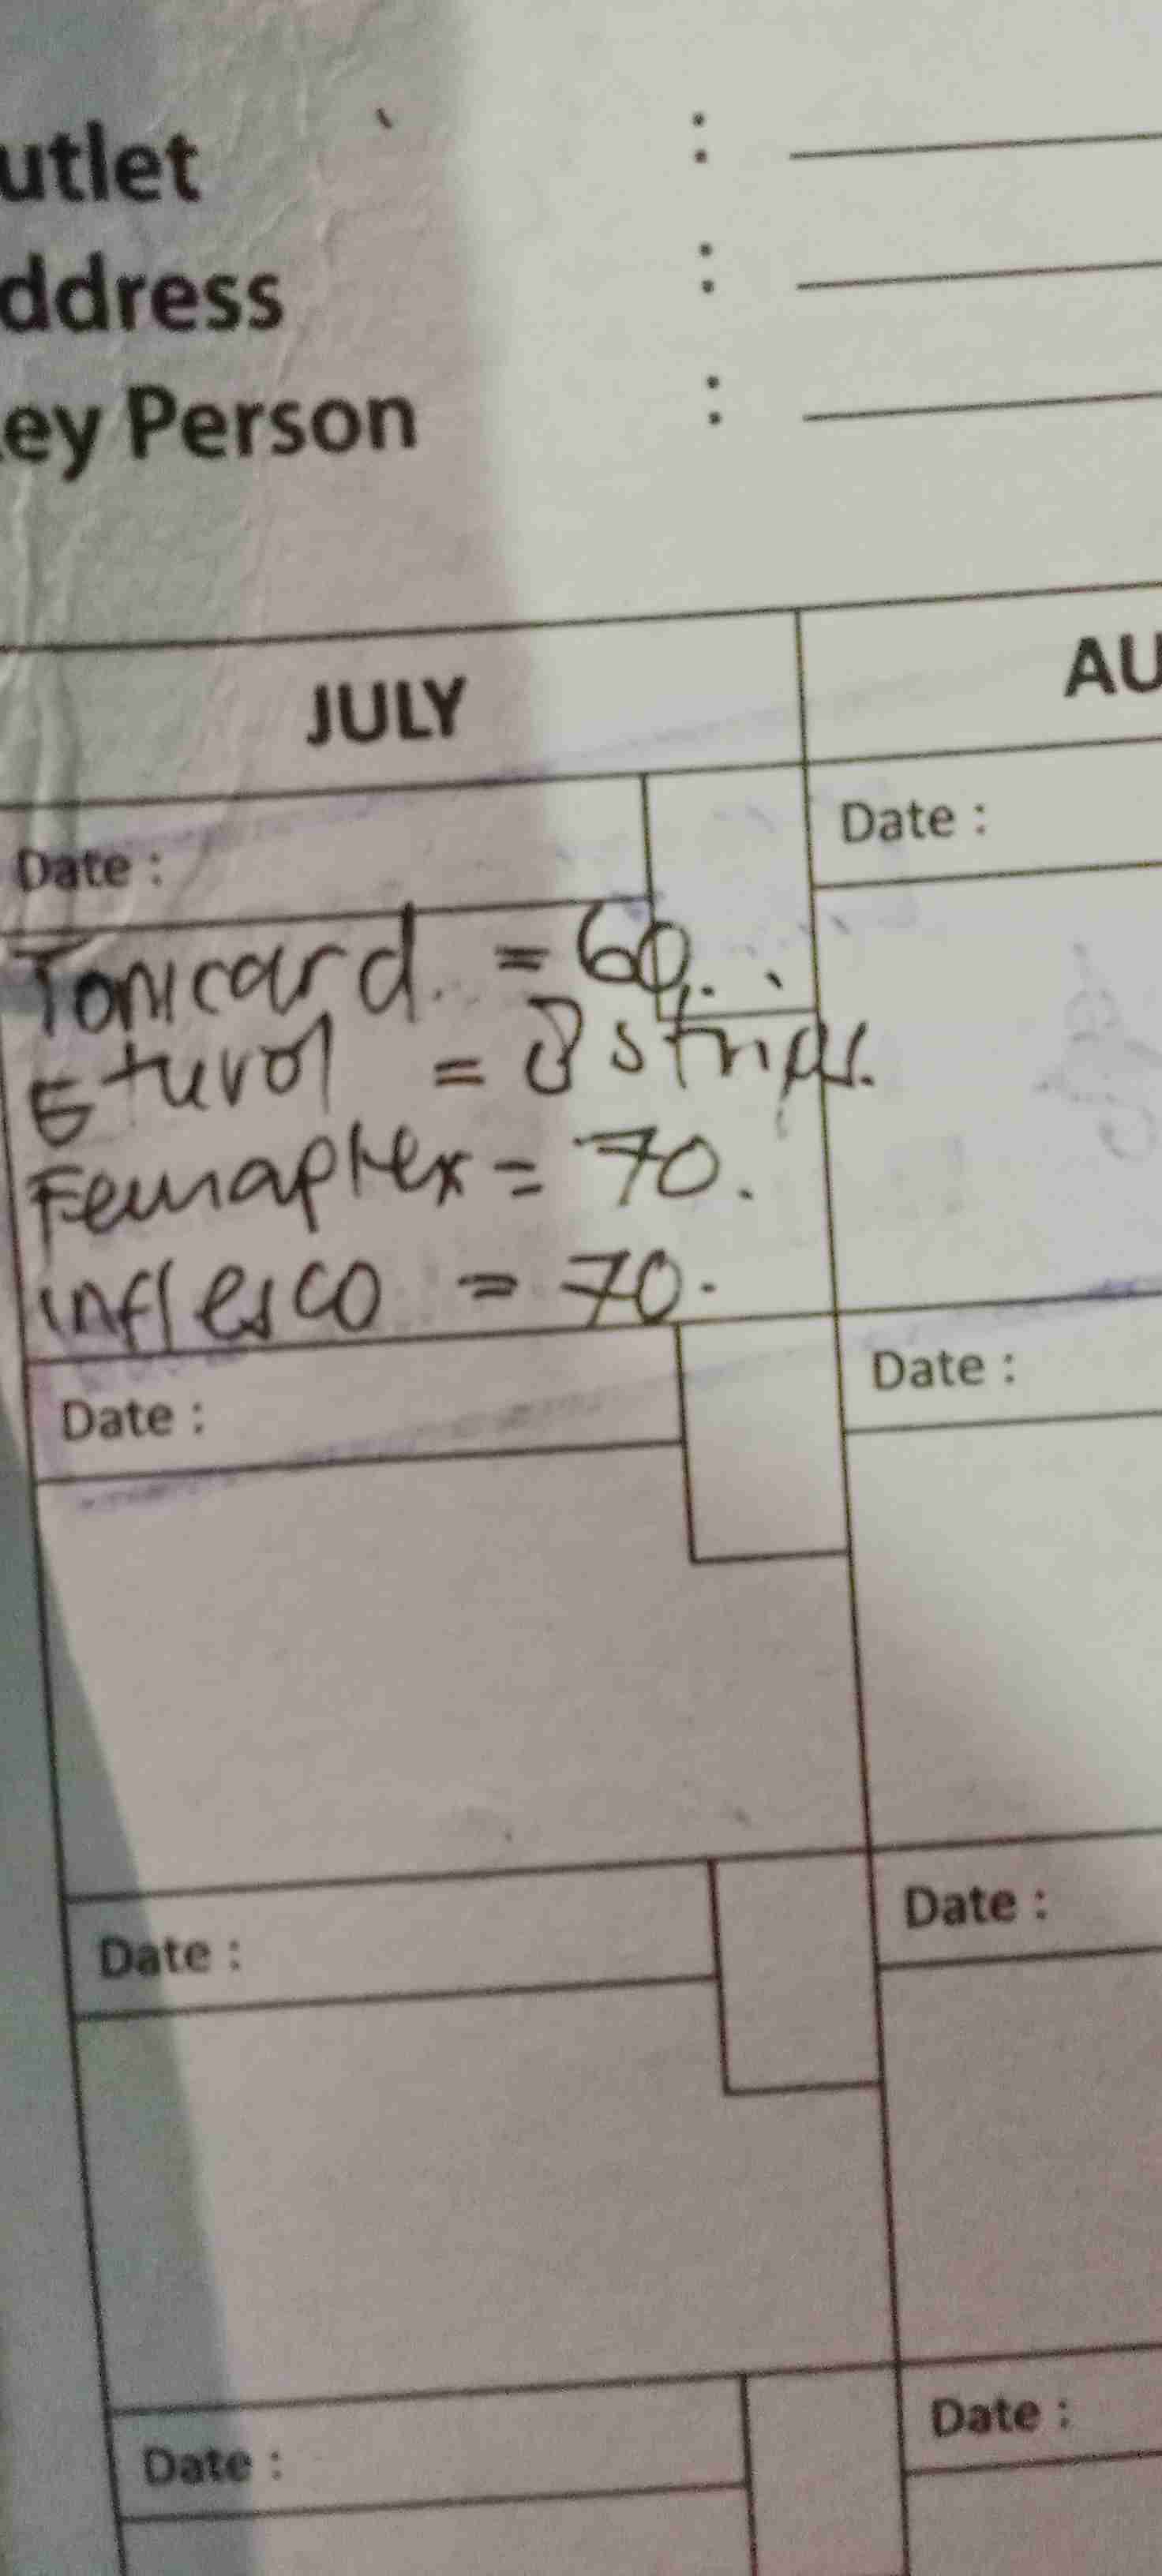 utlet :
ddress :
ey Person :
JULY AU
Date : Date :
Tonicard. = 60.
Eturol = 8 strips.
Femaplex = 70.
inflesco = 70.
Date : Date :
Date : Date :
Date : Date :